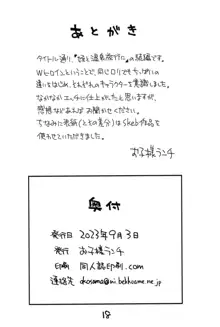 あとがき
タイトル通り、『姪と温泉旅行に』の続編です。
Wヒロインということで、同じロリでもちっぱいの
違いをはじめ、それぞれのキャラクターを意識しました。
なかなかエッチに仕上がったと思いますが、
感想などあればお聞かせください。
ちなみに表紙(とその差分)はSkeb作品を
使わせていただきました。
お子様ランチ
奥付
発行日 2023年9月3日
発行 お子様ランチ
印刷 同人誌印刷.com
連絡先
18